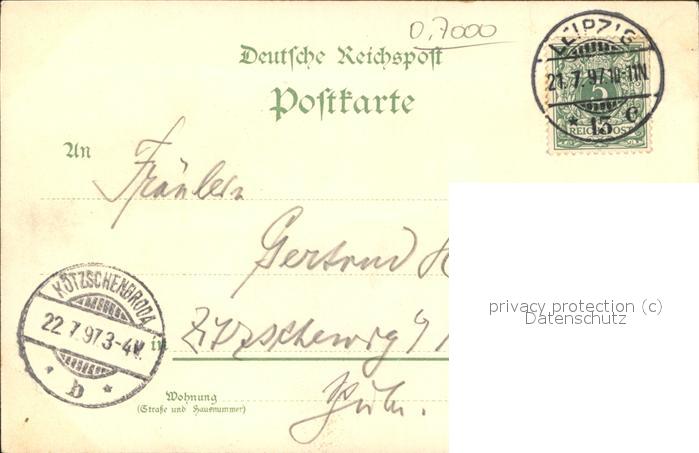 0,7000
Deutsche Reichspost
Postkarte
LEIPZIG
21.7.97.10-11N
* 13 e
5
REICHSPOST
An
Fräulein
Gertrud H
privacy protection (c)
Datenschutz
KÖTZSCHENBRODA
22.7.97.3-4N.
* b *
in
Zitzschewig
Wohnung
(Straße und Hausnummer)